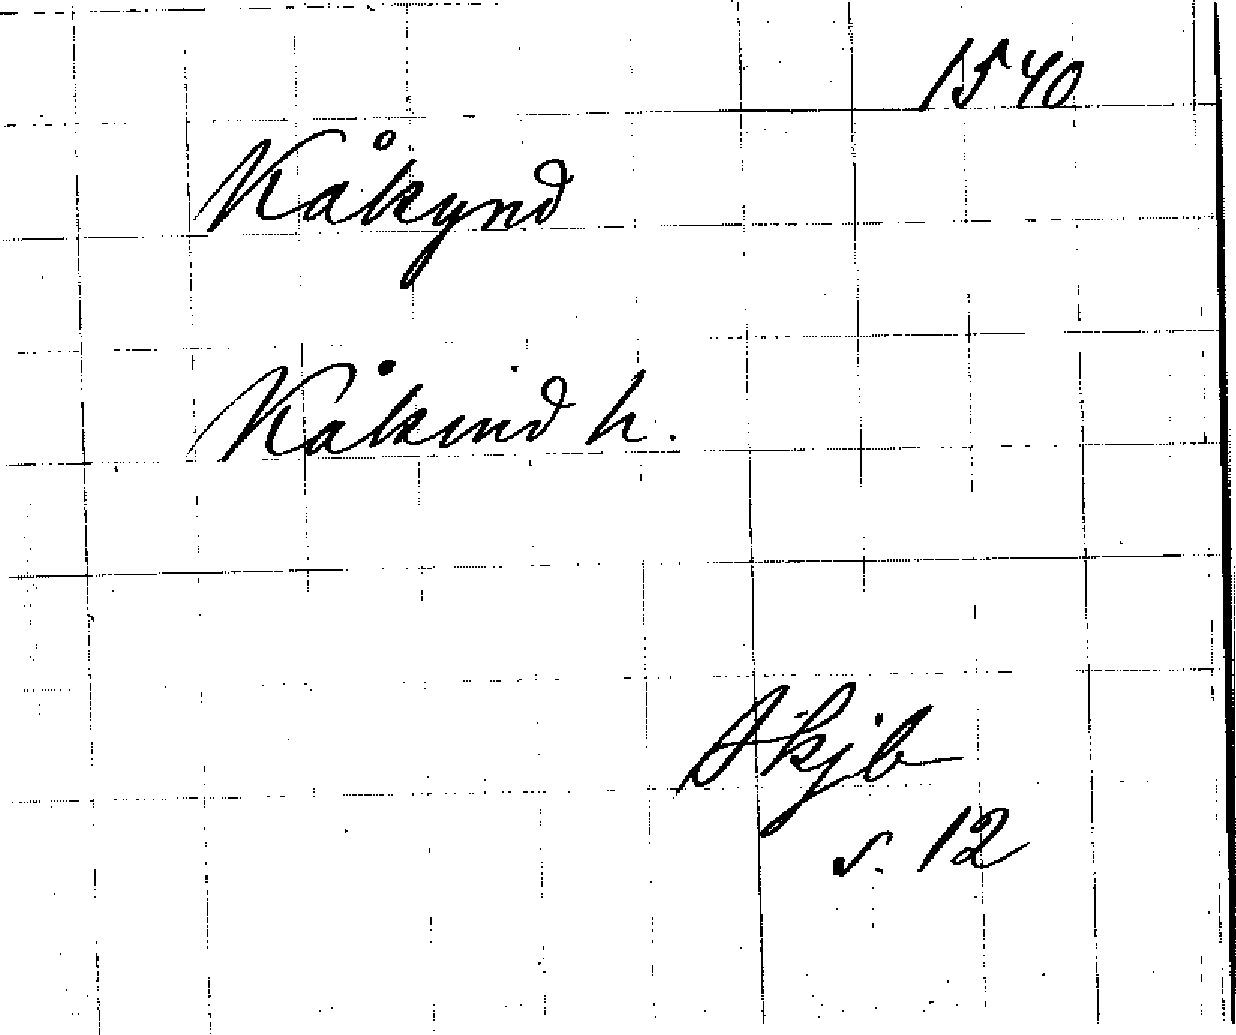 1540
Kåkynd
Kåkind h.
Skjb
s. 12